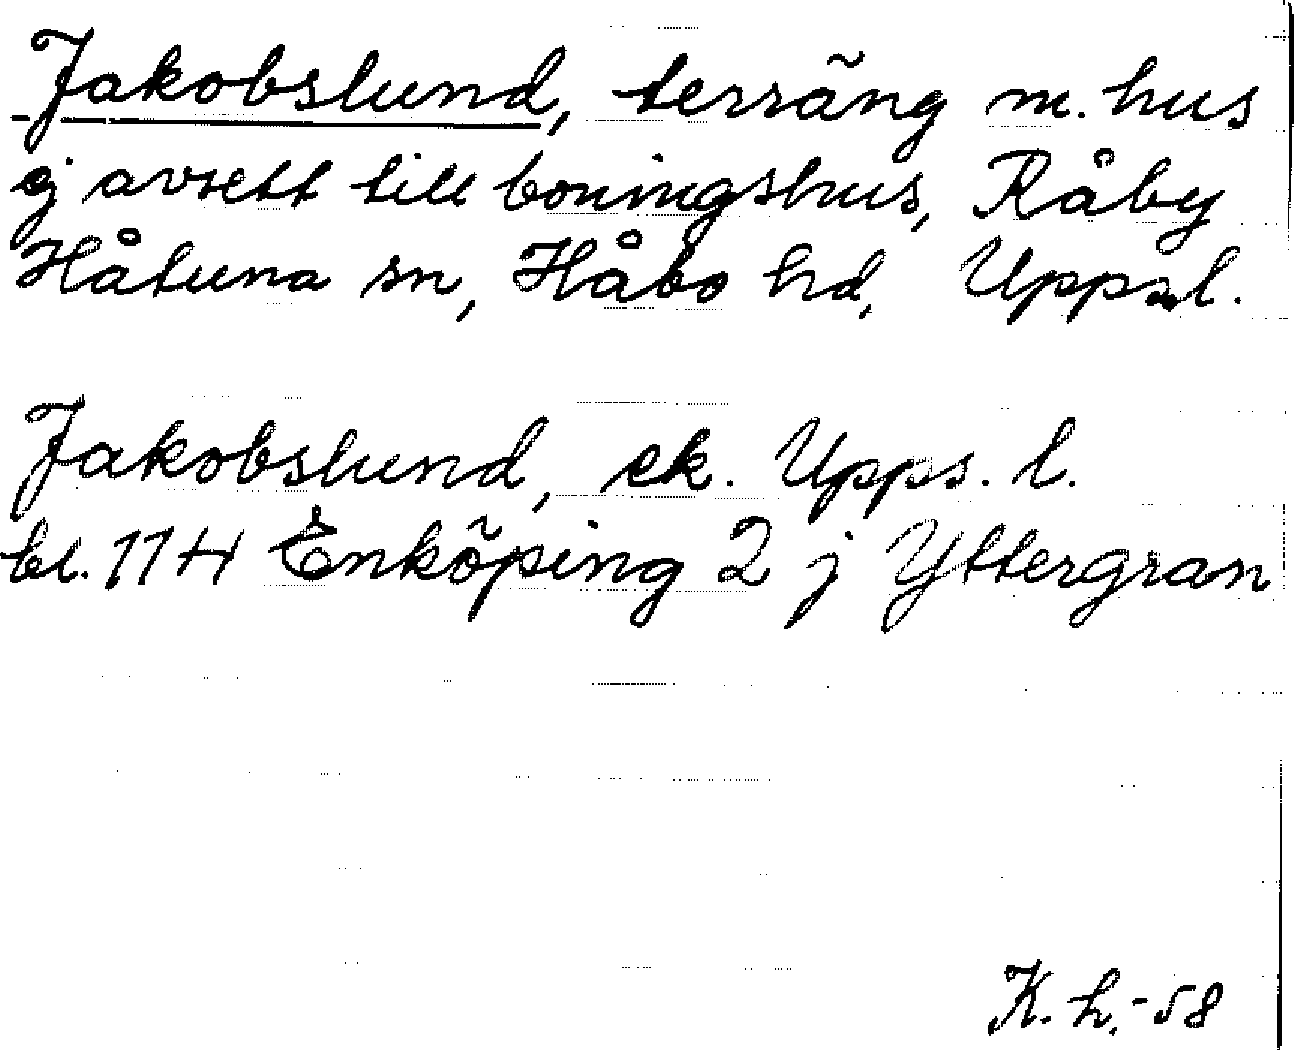 Jakobslund, terräng m. hus
ej avsett till boningshus, Råby
Håtuna sn, Håbo hd, Uppsl.
Jakobslund, ek. Upps. l.
bl. 11H Enköping 2 j Yttergran
K. h. -58